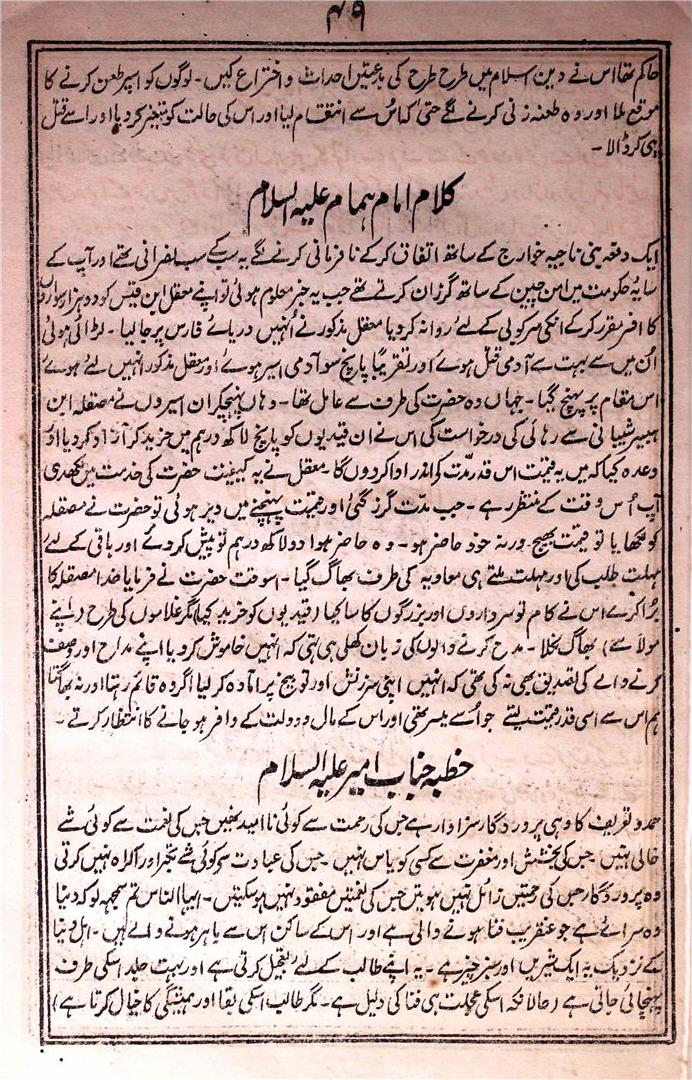 ۴۹
حاکم تھا اس نے دین اسلام میں طرح طرح کی بدعتیں احداث و اختراع کیں۔ لوگوں کو اسپر طعن کرنے کا
موقع ملا اور وہ طعنہ زنی کرنے لگے حتیٰ کہ اُس سے انتقام لیا اور اس کی حالت کو متغیر کر دیا اور اسے قتل
ہی کر ڈالا۔
کلام امام ہمام علیہ السلام
ایک دفعہ بنی ناجیہ خوارج کے ساتھ اتفاق کر کے نافرمانی کرنے لگے یہ سب کے سب نصرانی تھے اور آپ کے
سایۂ حکومت میں امن چین کے ساتھ گزران کرتے تھے جب یہ خبر معلوم ہوئی تو اپنے معقل ابن قیس کو دو ہزار سواروں
کا افسر مقرر کر کے انکی سرکوبی کے لئے روانہ کر دیا معقل مذکور نے انہیں دریائے فارس پر جا لیا۔ لڑائی ہوئی
اُن میں سے بہت سے آدمی قتل ہوئے اور تقریبًا پانچ سو آدمی اسیر ہوئے اور معقل مذکور انہیں لئے ہوئے
اس مقام پر پہنچ گیا۔ جہاں وہ حضرت کی طرف سے عامل تھا۔ وہاں پہنچکر ان اسیروں نے مصقلہ ابن
ہبیرہ شیبانی سے رہائی کی درخواست کی اس نے ان قیدیوں کو پانچ لاکھ درہم میں خرید کر آزاد کر دیا اور
وعدہ کیا کہ میں یہ قیمت اس قدر مدّت کے اندر ادا کر دوں گا۔ معقل نے یہ کیفیت حضرت کی خدمت میں لکھدی
آپ اُس وقت کے منتظر رہے۔ جب مدّت گزر گئی اور قیمت پہنچنے میں دیر ہوئی تو حضرت نے مصقلہ
کو لکھا یا تو قیمت بھیج ورنہ خود حاضر ہو۔ وہ حاضر ہوا دو لاکھ درہم تو پیش کر دئے اور باقی کے لئے
مہلت طلب کی اور مہلت ملتے ہی معاویہ کی طرف بھاگ گیا۔ اسوقت حضرت نے فرمایا خدا مصقلہ کا
بُرا کرے اس نے کام تو سرداروں اور بزرگوں کا سا کیا (قیدیوں کو خرید کیا) مگر غلاموں کی طرح (اپنے
مولا سے) بھاگ نکلا۔ مدح کرنے والوں کی زبان کھلی ہی تھی کہ انہیں خاموش کر دیا اپنے مداح اور وصف
کرنے والے کی تصدیق بھی نہ کی تھی کہ انہیں اپنی سرزنش اور توبیخ پر آمادہ کر لیا اگر وہ قائم رہتا اور نہ بھاگتا
ہم اس سے اسی قدر قیمت لیتے جو اُسے میسر تھی اور اس کے مال و دولت کے وافر ہو جانے کا انتظار کرتے۔
خطبہ جناب امیر علیہ السلام
حمد و تعریف کا وہی پروردگار سزاوار ہے جس کی رحمت سے کوئی ناامید نہیں جس کی نعمت سے کوئی شے
خالی نہیں جس کی بخشش اور مغفرت سے کسی کو یاس نہیں۔ جس کی عبادت سے کوئی شے تکبر اور اکراہ نہیں کرتی
وہ پروردگار جس کی رحمتیں زائل نہیں ہوتیں جس کی نعمتیں مفقود نہیں ہو سکتیں۔ ایہا الناس تم سمجھ لو کہ دنیا
وہ سرائے ہے جو عنقریب فنا ہونے والی ہے اور اس کے ساکن اس سے باہر ہونے والے ہیں۔ اہل دنیا
کے نزدیک یہ ایک شیریں اور سبز چیز ہے۔ یہ اپنے طالب کے لئے تعجیل کرتی ہے اور بہت جلد اسکی طرف
پہنچائی جاتی ہے (حالانکہ اسکی عجلت ہی فنا کی دلیل ہے۔ مگر طالب اسکی بقا اور ہمیشگی کا خیال کرتا ہے)